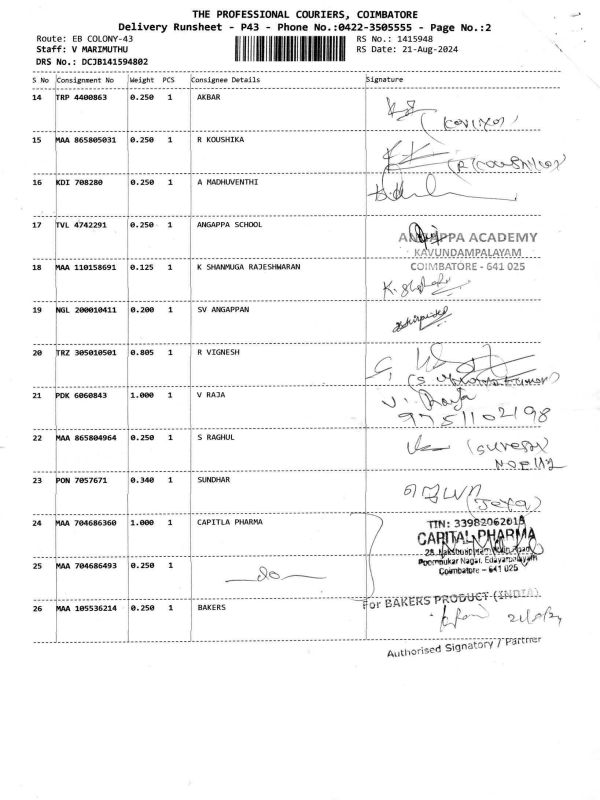 THE PROFESSIONAL COURIERS, COIMBATORE
Delivery Runsheet - P43 - Phone No.:0422-3505555 - Page No.:2
Route: EB COLONY-43 RS No.: 1415948
Staff: V MARIMUTHU RS Date: 21-Aug-2024
DRS No.: DCJB141594802
S No Consignment No Weight PCS Consignee Details Signature
14 TRP 4400863 0.250 1 AKBAR
15 MAA 865805031 0.250 1 R KOUSHIKA
16 KDI 708280 0.250 1 A MADHUVENTHI
17 TVL 4742291 0.250 1 ANGAPPA SCHOOL
ANGAPPA ACADEMY
KAVUNDAMPALAYAM
COIMBATORE - 641 025
18 MAA 110158691 0.125 1 K SHANMUGA RAJESHWARAN
19 NGL 200010411 0.200 1 SV ANGAPPAN
20 TRZ 305010501 0.805 1 R VIGNESH
21 PDK 6060843 1.000 1 V RAJA
V. Raja
9751102198
22 MAA 865804964 0.250 1 S RAGHUL
(Suresh)
23 PON 7057671 0.340 1 SUNDHAR
(Jeya)
24 MAA 704686360 1.000 1 CAPITLA PHARMA
TIN: 33982062019
CAPITAL PHARMA
Poompukar Nagar, Edayarpalayam
Coimbatore - 641 025
25 MAA 704686493 0.250 1 do
26 MAA 105536214 0.250 1 BAKERS
For BAKERS PRODUCT (INDIA)
Authorised Signatory / Partner